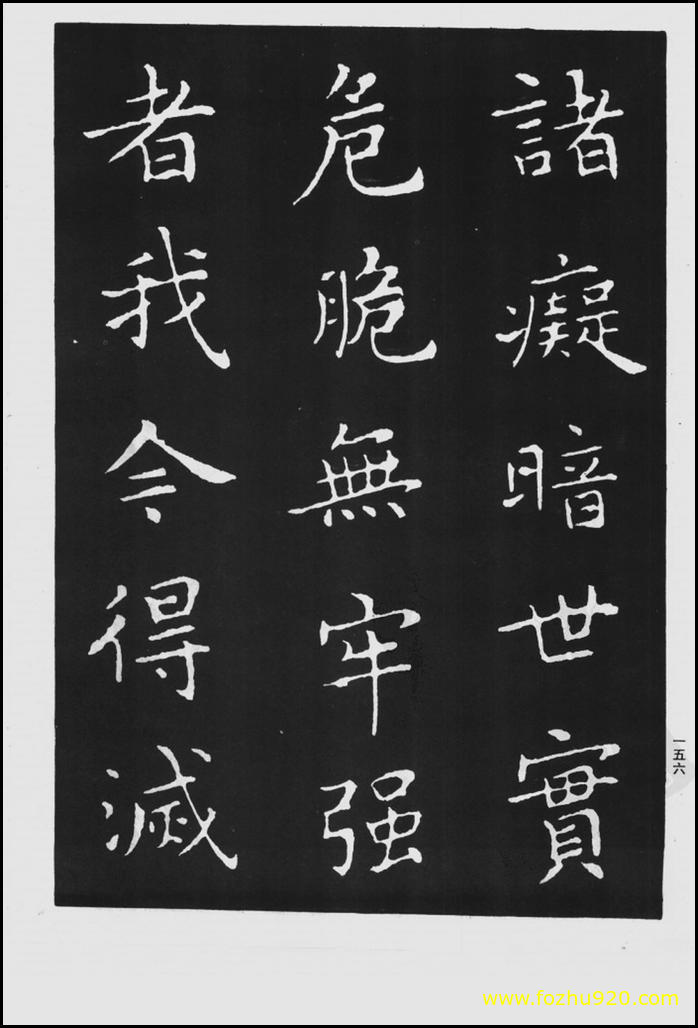 諸癡暗世實
危脆無牢强
者我今得滅
一五六
www.fozhu920.com